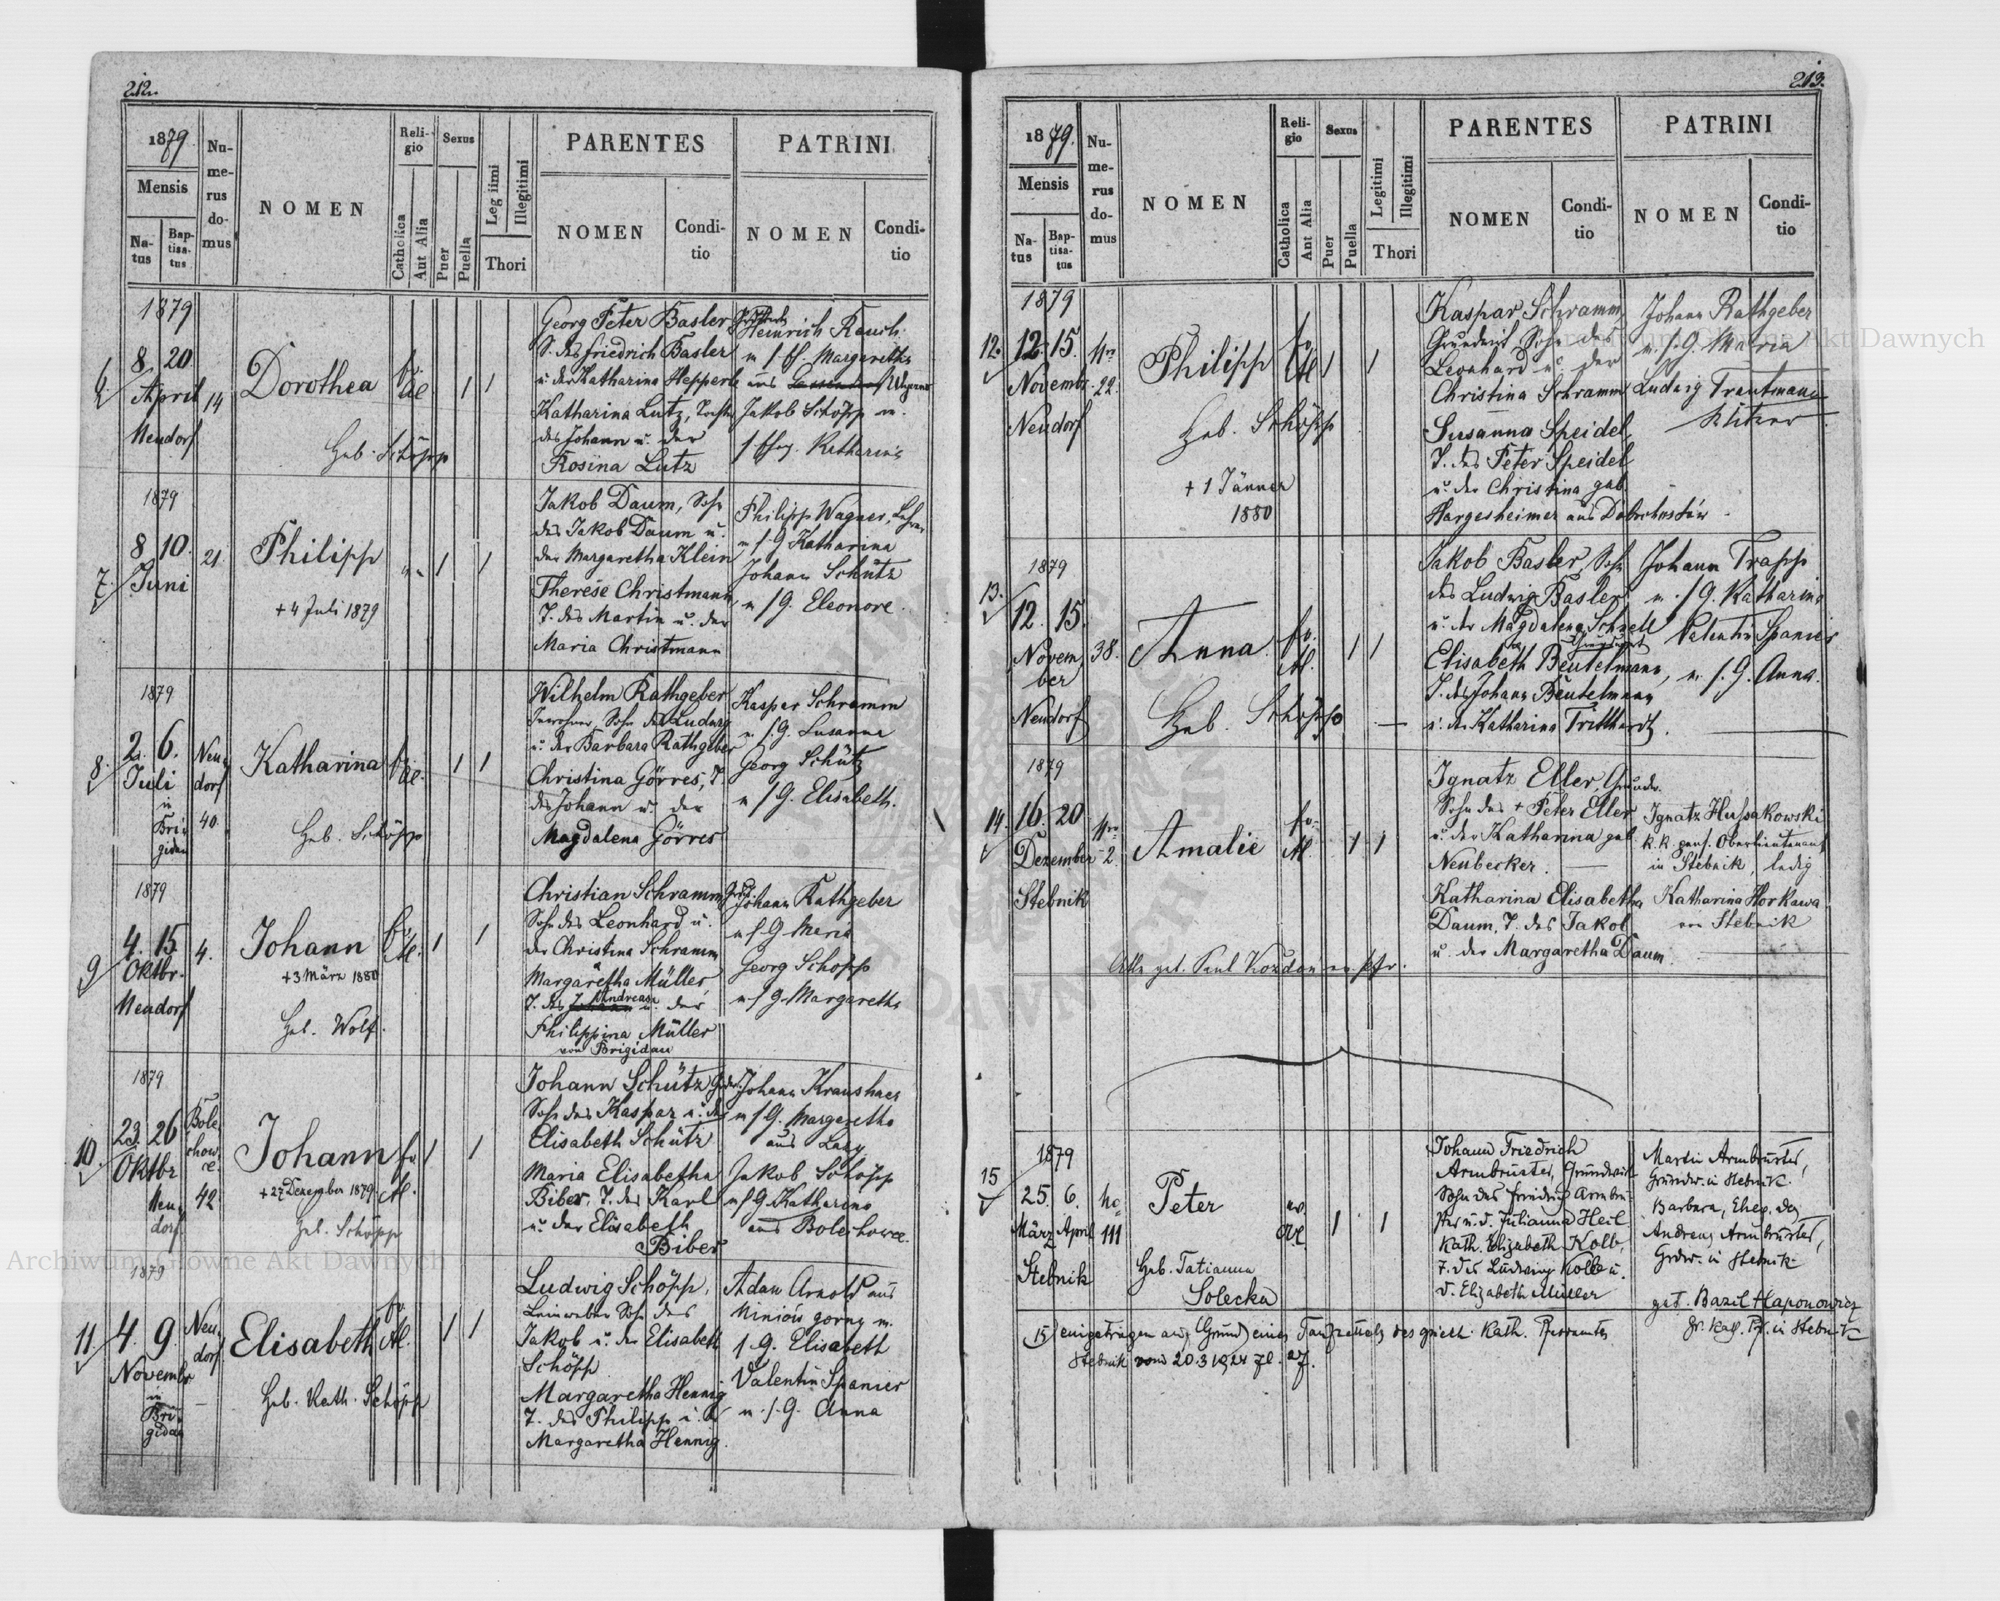 212.
1879.
Mensis
Na-
tus
Bap-
tisa-
tus
Nu-
me-
rus
do-
mus
NOMEN
Reli-
gio
Catholica
Aut Alia
Sexus
Puer
Puella
Legitimi
Illegitimi
Thori
PARENTES
NOMEN
Condi-
tio
PATRINI
NOMEN
Condi-
tio
1879
8 20
April 14
Neudorf
Dorothea
Heb. Schöpp
Georg Peter Basler
S. des Friedrich Basler
u. der Katharina Hepperle
Katharina Lutz, Tochter
des Johann u. der
Rosina Lutz
Heinrich Rauch
Margaretha
aus
Jakob Schöpp u.
Katharina
7.
1879
8 10. 21.
Juni
Philipp
+ 4 Juli 1879
Jakob Daum, Sohn
des Jakob Daum u.
der Margaretha Klein
Therese Christmann,
T. des Martin u. der
Maria Christmann
Philipp Wagner, Lehrer
u. s. G. Katharina
Johann Schütz
u. s. G. Eleonore.
8.
1879
2. 6. Neu-
Juli dorf
in
Bri-
gidau
40.
Katharina
Heb. Schöpp
Wilhelm Rathgeber
Inwohner, Sohn des Ludwig
u. der Barbara Rathgeber
Christina Görres, T.
des Johann u. der
Magdalena Görres
Kaspar Schramm
u. s. G. Susanna
Georg Schütz
u. s. G. Elisabeth.
9
1879
4. 15 4.
Oktbr.
Neudorf
Johann
+ 3 März 1880
Heb. Wolf.
Christian Schramm, Grdw.
Sohn des Leonhard u.
der Christina Schramm
Margaretha Müller,
T. des Andreas u. der
Philippina Müller
von Brigidau
Johann Rathgeber
u. s. G. Maria
Georg Schöpp
u. s. G. Margaretha
10.
1879
23. 26
Oktbr
Neu-
dorf
Bole-
chow-
ce
42
Johann
+ 27 Dezember 1879
Heb. Schöpp
Johann Schütz, Grdw.
Sohn des Kaspar u. der
Elisabeth Schütz
Maria Elisabetha
Biber. T. des Karl
u. der Elisabeth
Biber
Johann Kraushaar
u. s. G. Margaretha
aus
Jakob Schöpp
u. s. G. Katharina
aus Bolechowce.
11
1879
4. 9. Neu-
dorf
Novembr
in
Bri-
gidau
Elisabeth
Heb. Kath. Schöpp
Ludwig Schöpp,
Leinweber Sohn des
Jakob u. der Elisabeth
Schöpp
Margaretha Hennig
T. des Philipp u. der
Margaretha Hennig.
Adam Arnold aus
gorny u.
s. G. Elisabeth
Valentin Spanier
u. s. G. Anna
213.
1879.
Mensis
Na-
tus
Bap-
tisa-
tus
Nu-
me-
rus
do-
mus
NOMEN
Reli-
gio
Catholica
Aut Alia
Sexus
Puer
Puella
Legitimi
Illegitimi
Thori
PARENTES
NOMEN
Condi-
tio
PATRINI
NOMEN
Condi-
tio
12.
1879
12. 15. Nro
Novembr. 22.
Neudorf
Philipp
Heb. Schöpp
+ 1 Jänner
1880
Kaspar Schramm,
Grundwirt Sohn des
Leonhard u. der
Christina Schramm
Susanna Speidel,
T. des Peter Speidel
u. der Christina geb.
Hargesheimer aus Dobrohostów
Johann Rathgeber
u. s. G. Maria
Ludwig Trautmann
13.
1879
12. 15.
Novem- 38.
ber
Neudorf
Anna
Heb. Schöpp
Jakob Basler, Sohn
des Ludwig Basler
u. der Magdalena Schnell
Elisabeth Beutelmann,
T. des Johann Beutelmann
u. der Katharina Tritthardt.
Johann Trapp
u. s. G. Katharina
Valentin Spanier
u. s. G. Anna.
14.
1879
16. 20 Nro
Dezember 2.
Stebnik
Amalie
Ignatz Eller, Grundw.
Sohn des + Peter Eller
u. der Katharina geb.
Neubecker.
Katharina Elisabetha
Daum, T. des Jakob
u. der Margaretha Daum.
Ignatz Hussakowski
k. k. pens. Oberlieutenant
in Stebnik, ledig
Katharina Horkawa
in Stebnik
15
1879
25. 6. No
März April 111
Stebnik
Peter
Heb. Tatianna
Solecka
Johann Friedrich
Armbruster, Grundwirt
Sohn des Friedrich Armbru-
ster u. d. Julianna Heil
Kath. Elizabeth Kolb,
T. des Ludwig Kolb u.
d. Elizabeth Müller
Martin Armbruster,
Grundw. in Stebnik.
Barbara, Eheg. des
Andreas Armbruster,
Grdw. in Stebnik
get. Bazil Haponowicz
gr. kath. Pf. in Stebnik
15) eingetragen auf Grund eines Taufscheines des griech. kath. Pfarramtes
Stebnik vom 20.3.1924
Archiwum Główne Akt Dawnych
Archiwum Główne Akt Dawnych